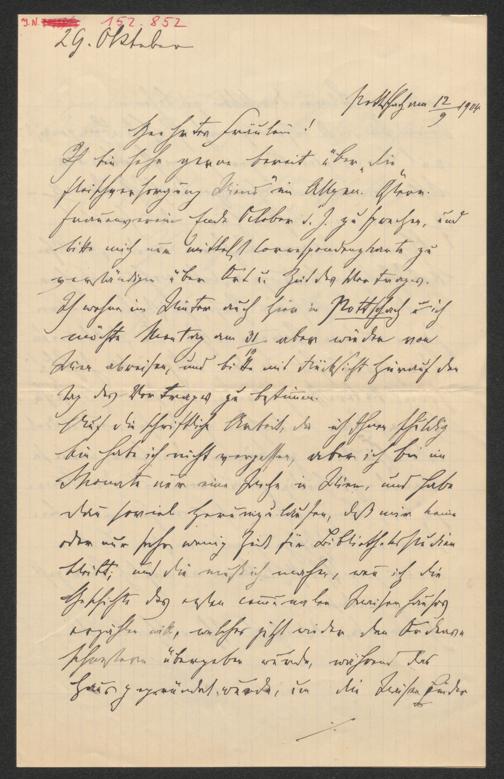 I.N. 152.852
29. Oktober
Pottschach am 12/9 1904
Geehrtes Fräulein!
Ich bin sehr gerne bereit über „die
Fleischversorgung Wiens" im Allgem. Österr.
Frauenverein Ende October d. J. zu sprechen, und
bitte mich nur mittelst Correspondenzkarte zu
verständigen über Ort u. Zeit des Vortrages.
Ich wohne im Winter auch hier in Pottschach u. ich
möchte Montag am 31/10 aber wieder von
Wien abreisen, und bitte mit Rücksicht hierauf den
Tag des Vortrages zu bestimmen.
Auf die schriftliche Arbeit, die ich Ihnen schuldig
bin habe ich nicht vergessen, aber ich bin im
Monate nur eine Woche in Wien, und habe
dann soviel herumzulaufen, daß mir keine
oder nur sehr wenig Zeit für Bibliotheksstudien
bleibt; und die muß ich machen, wenn ich die
Geschichte des ersten communalen Waisenhauses
erzählen will, welches jetzt wieder den Ordens-
schwestern übergeben wurde, während das
Haus gegründet wurde, um die Waisenkinder